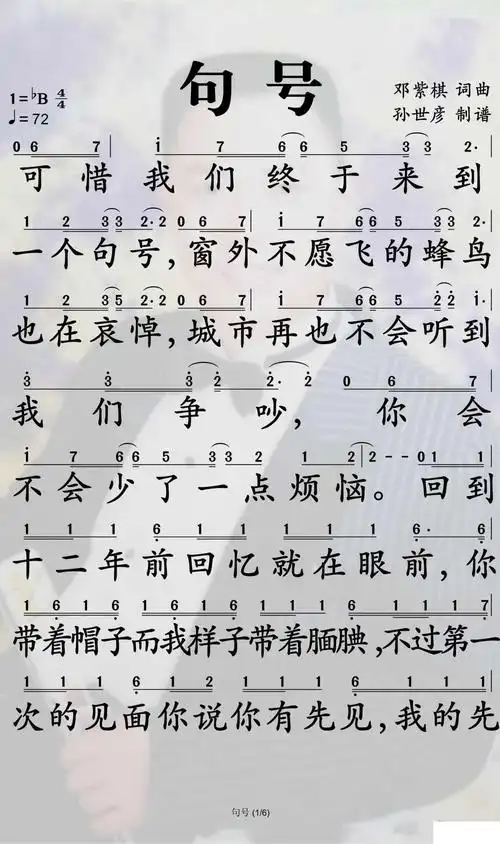 句号
1=♭B 4/4
♩=72
邓紫棋 词曲
孙世彦 制谱
0 6 7 | i 7 6 6 5 3 3 2· |
可惜我们终于来到
1 2 3 3 2·2 0 6 7 | i 7 6 6 5 3 3 2· |
一个句号,窗外不愿飞的蜂鸟
1 2 3 5 2·2 0 6 7 | i 7 6 6 5 2 2 i· |
也在哀悼,城市再也不会听到
3 3 3 2 2 2· 0 6 7 |
我们争吵,你会
i 7 6 6 5 3 3 2 1 2 | 2 - - 0 1 1 |
不会少了一点烦恼。回到
1 1 1 6 1 1 1 1 1 6· 6 |
十二年前回忆就在眼前,你
1 6 1 6 1 6 1 6 1 6 1 6 1 1 1 7 |
带着帽子而我样子带着腼腆,不过第一
1 1 1 6 1 2 1 1 1 1 6 1 1 1 |
次的见面你说你有先见,我的先
句号 (1/6)